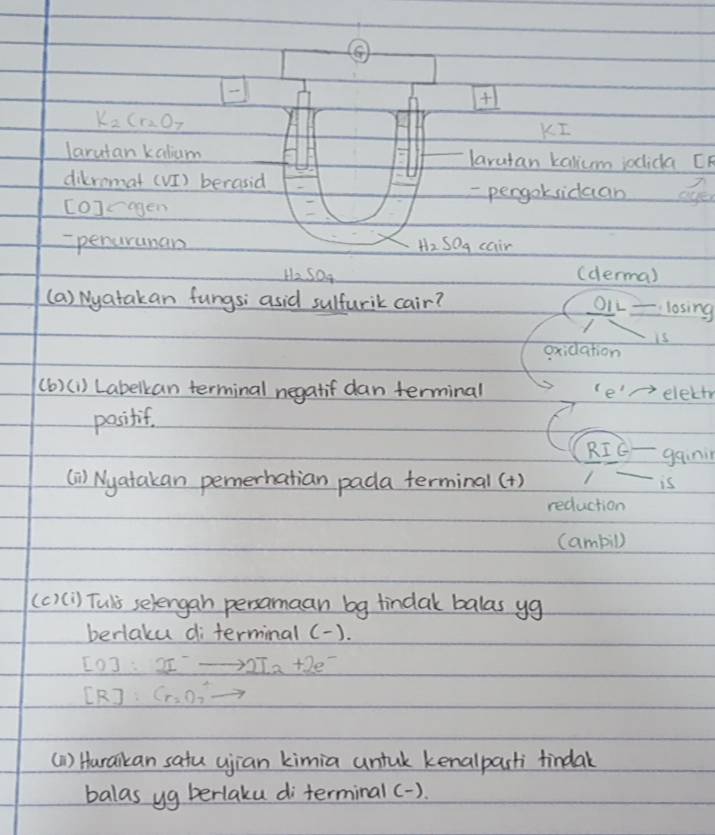 G
-
+
K2Cr2O7
KI
larutan kalium
larutan kalium iodida [R
dikromat (VI) berasid
- pengoksidaan
[O] agen
- penurunan
H2SO4 cair
H2SO4
(derma)
(a) Nyatakan fungsi asid sulfurik cair?
OIL losing
is
oxidation
(b)(i) Labelkan terminal negatif dan terminal
'e' → elektr
positif.
RIG gainin
(ii) Nyatakan pemerhatian pada terminal (+)
is
reduction
(ambil)
(c)(i) Tulis setengah persamaan bg tindak balas yg
berlaku di terminal (-).
[O] : 2I⁻ → 2I2 + 2e⁻
[R] : Cr2O7⁺ →
(ii) Huraikan satu ujian kimia untuk kenalpasti tindak
balas yg berlaku di terminal (-).